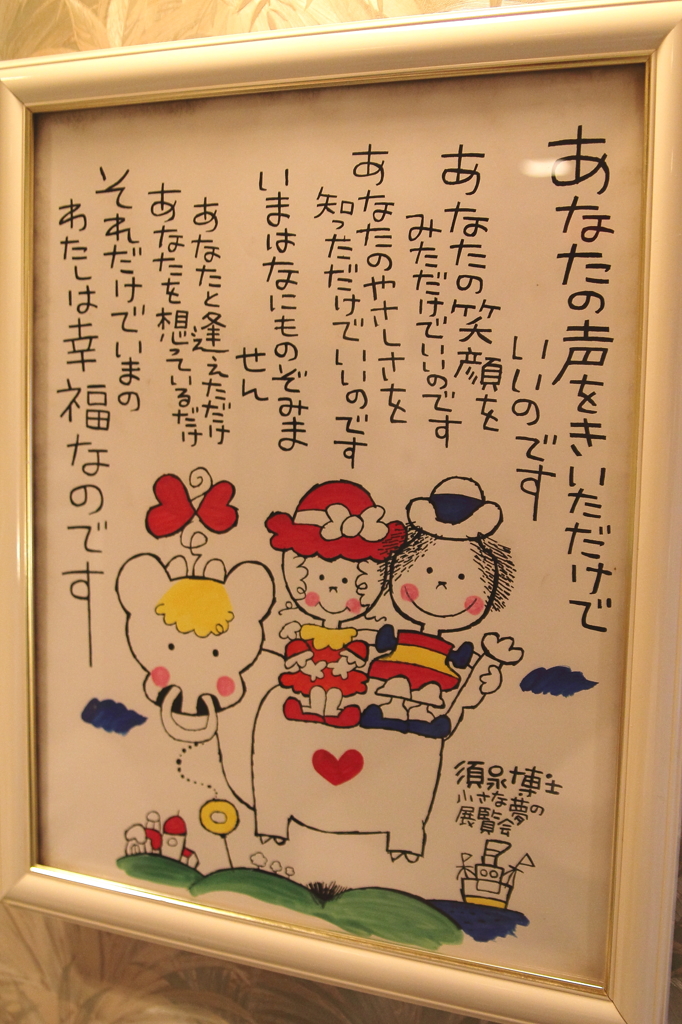 あなたの声をきいただけで
いいのです
あなたの笑顔を
みただけでいいのです
あなたのやさしさを
知っただけでいいのです
いまはなにものぞみま
せん
あなたと逢えただけ
あなたを想っているだけ
それだけでいまの
わたしは幸福なのです
須永博士
小さな夢の
展覧会